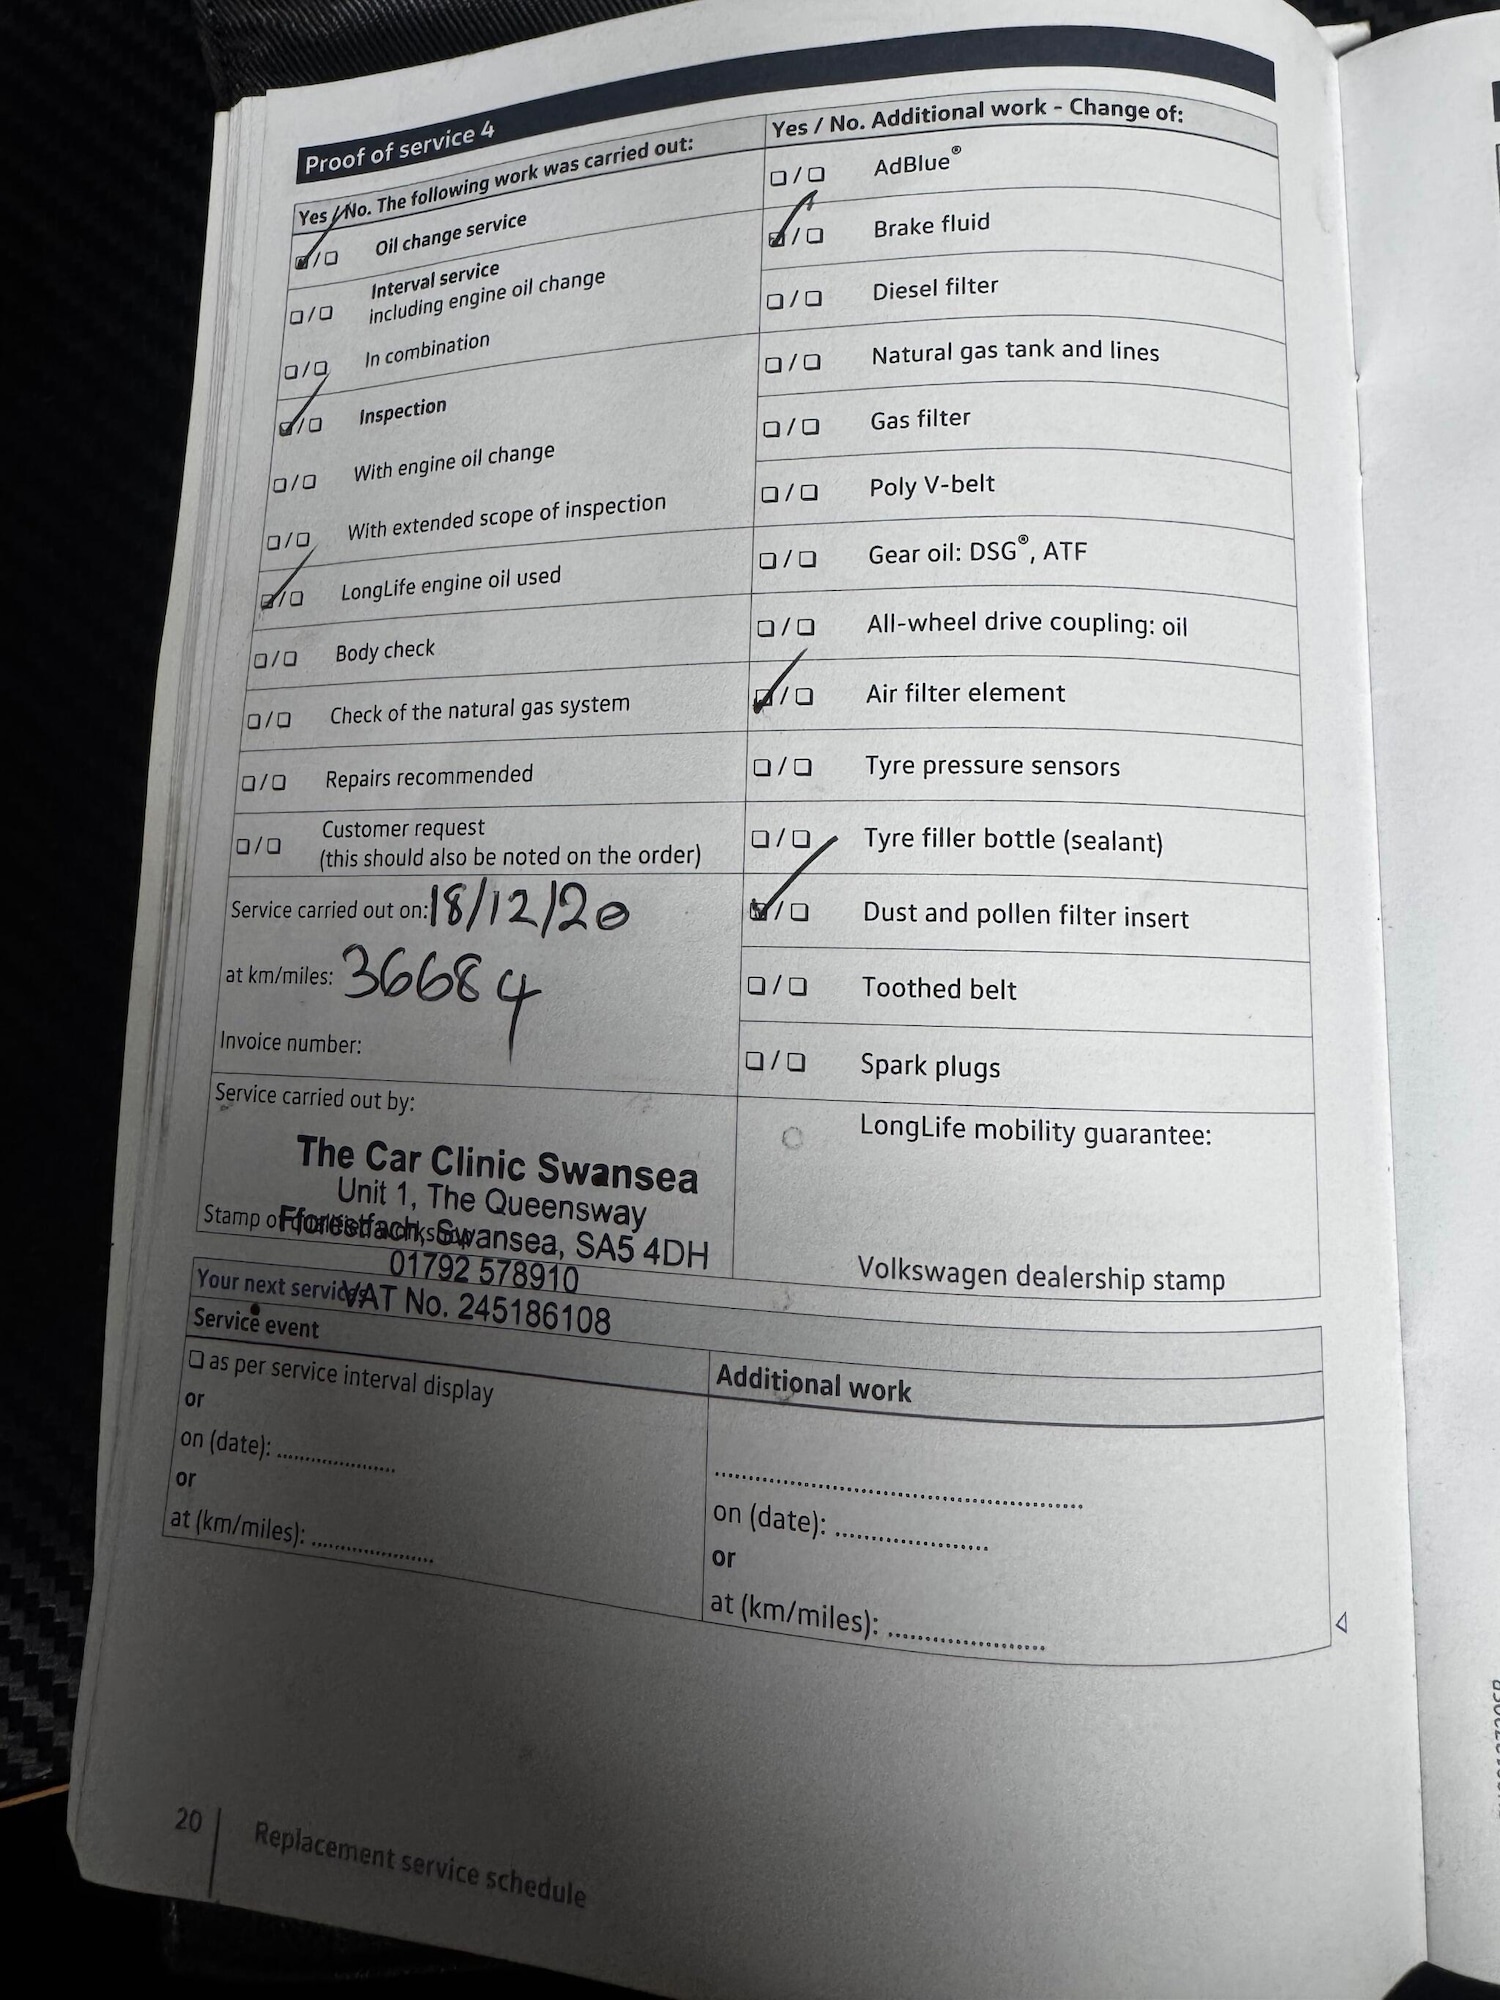 Proof of service 4
Yes / No. The following work was carried out:
☑/☐ Oil change service
☐/☐ Interval service
including engine oil change
☐/☐ In combination
☑/☐ Inspection
☐/☐ With engine oil change
☐/☐ With extended scope of inspection
☑/☐ LongLife engine oil used
☐/☐ Body check
☐/☐ Check of the natural gas system
☐/☐ Repairs recommended
☐/☐ Customer request
(this should also be noted on the order)
Service carried out on: 18/12/20
at km/miles: 36684
Invoice number:
Service carried out by:
The Car Clinic Swansea
Unit 1, The Queensway
Fforestfach, Swansea, SA5 4DH
01792 578910
VAT No. 245186108
Stamp of
Yes / No. Additional work - Change of:
☐/☐ AdBlue®
☑/☐ Brake fluid
☐/☐ Diesel filter
☐/☐ Natural gas tank and lines
☐/☐ Gas filter
☐/☐ Poly V-belt
☐/☐ Gear oil: DSG®, ATF
☐/☐ All-wheel drive coupling: oil
☑/☐ Air filter element
☐/☐ Tyre pressure sensors
☐/☐ Tyre filler bottle (sealant)
☑/☐ Dust and pollen filter insert
☐/☐ Toothed belt
☐/☐ Spark plugs
LongLife mobility guarantee:
Volkswagen dealership stamp
Your next services
Service event
☐ as per service interval display
or
on (date): ....................
or
at (km/miles): ....................
Additional work
............................................................
on (date): .........................
or
at (km/miles): .........................
◁
20
Replacement service schedule